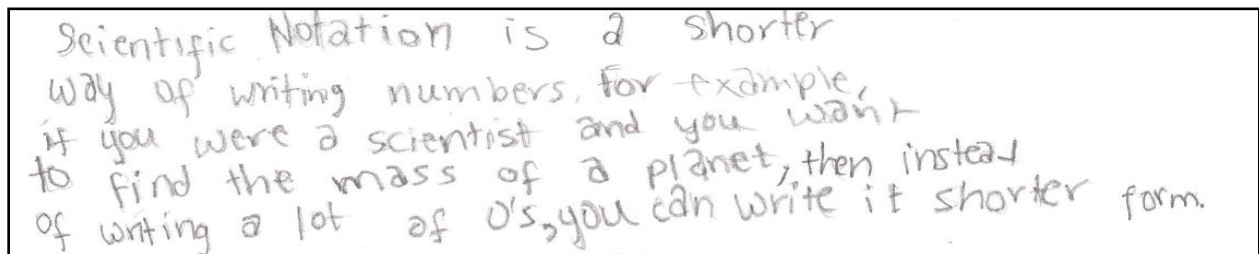 Scientific Notation is a shorter
way of writing numbers. For example,
if you were a scientist and you want
to find the mass of a planet, then instead
of writing a lot of 0's, you can write it shorter form.